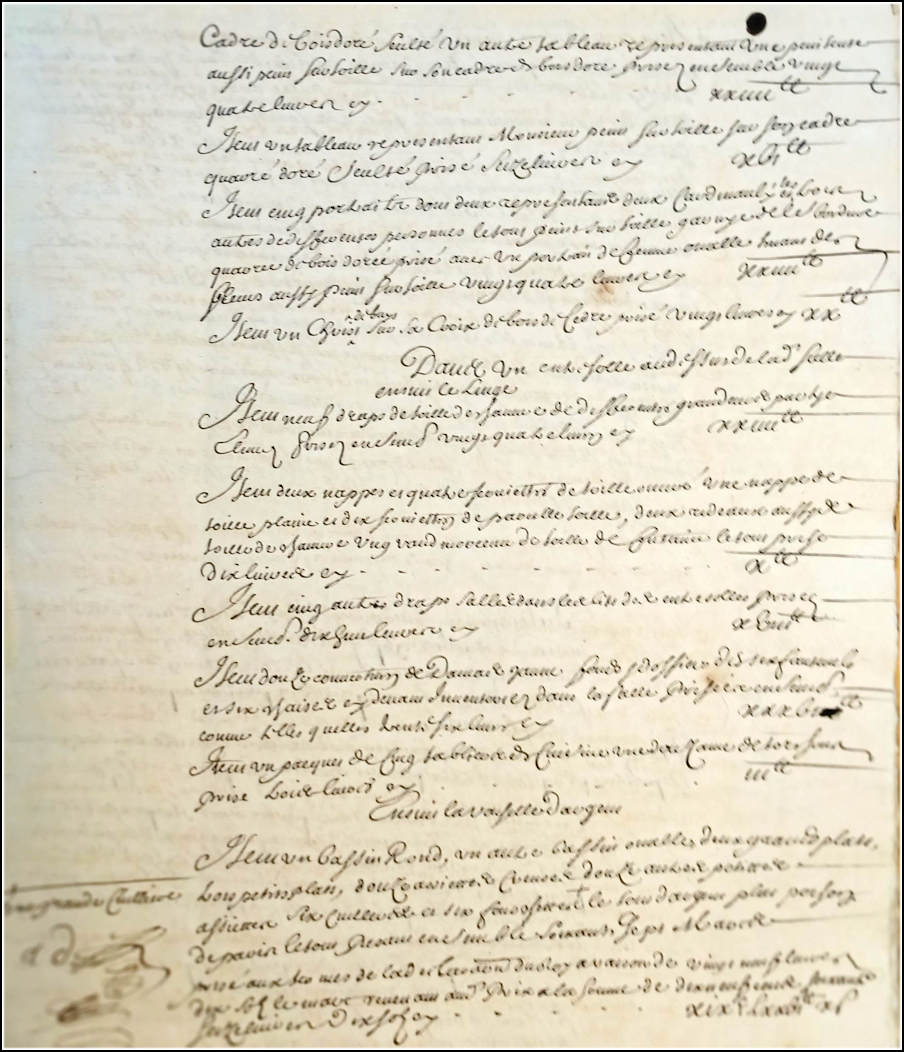 Cadre de bois doré seulté un autre tableau representant une penitente
aussi peint sur toille sur son cadre de bois doré prisez ensemble vingt
quatre livres cy
xxiiii lt
Item un tableau representant Monsieur peint sur toille sur son cadre
quarré doré seulté prisé seize livres cy
xvi lt
Item cinq portraits dont deux representans deux Cardinaulx les trois
autres de differentes personnes le tout peint sur toille garnye de le bordure
quarree de bois doreé prisé avec un portrait de femme ovalle tenant des
fleurs aussy peint sur toille vingt quatre livres cy
xxiiii lt
Item un Christ de buys sur sa Croix de bois de Cedre prisé vingt livres cy xx lt
Dans un entresolle au dessus de lad. salle
ensuit le Linge
Item neuf draps de toille de chanvre de differentes grandeurs partye
prisez ensemb. vingt quatre livres cy
xxiiii lt
Item deux nappes et quatre serviettes de toille ouvré une nappe de
toille plaine et dix serviettes de pareille toille, deux rideaux aussy de
toille de chanvre un grand morceau de toille de futaine le tout prisé
Dix livres cy
x lt
Item cinq autres draps salles dans les lits des entresolles prisez
ensemb. dix huit livres cy
xviii lt
Item douze couvertures de Damas jaune fonds dossiers des six fauteuils
et six chaises cy devant Inventoriez dans la salle prisées ensemb.
comme telles quelles trente six livres cy
Item un pacquet de cinq tabliers de Cuisine une douzaine de torchons
prisé trois livres cy
iii lt
Ensuit la vaisselle d'argent
Item un bassin Rond, un autre bassin ovalle, deux grands plats,
trois petits plats, douze assiettes creuses douze autres petittes
assiettes six cuilleres et six fourchettes le tout d'argent plus poinçon
de paris le tout pesant ensemble soixante sept Marcs
prisé aux termes de lad. declaration du Roy a raison de vingt neuf livres
dix sols le marc revenant aud. prix a la somme de dix neuf cens soixante
seize livres dix sols cy
une grande Cuilliere